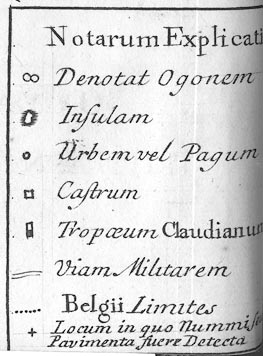 Notarum Explicati
Denotat Ogonem
Insulam
Urbem vel Pagum
Castrum
Tropæum Claudianum
Viam Militarem
Belgii Limites
Locum in quo Nummi, se
Pavimenta fuere Detecta